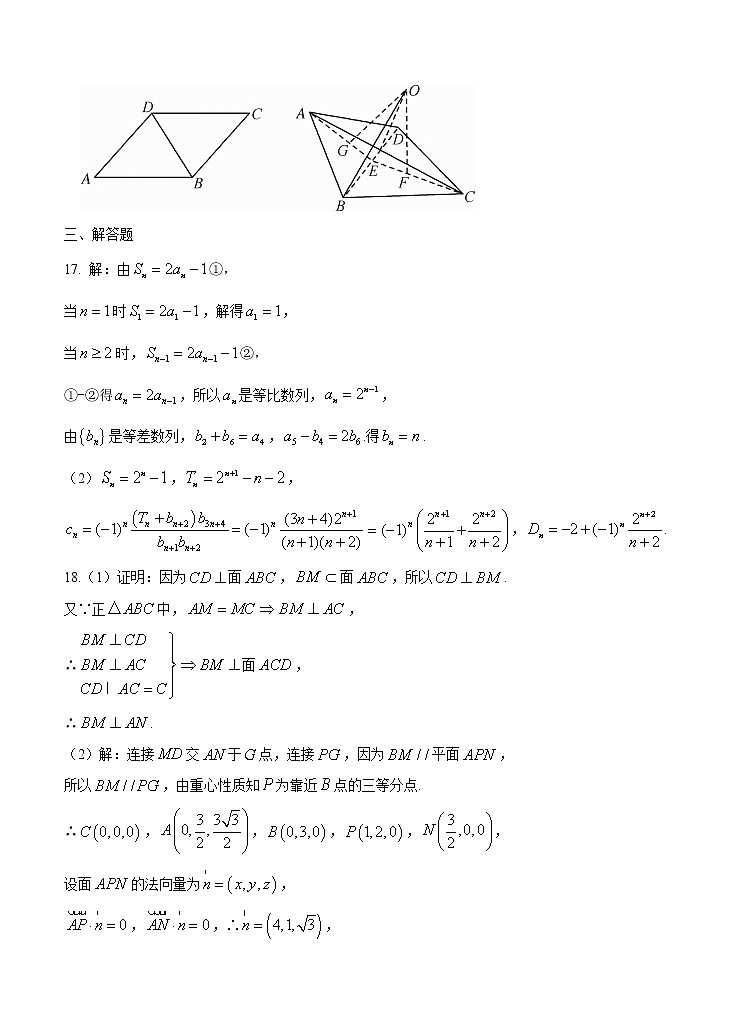 D C A B
A O D G E F B C
三、解答题
17. 解：由 Sₙ = 2aₙ − 1①，
当 n = 1 时 S₁ = 2a₁ − 1，解得 a₁ = 1，
当 n ≥ 2 时，Sₙ₋₁ = 2aₙ₋₁ − 1②，
①-②得 aₙ = 2aₙ₋₁，所以 aₙ 是等比数列，aₙ = 2ⁿ⁻¹，
由{bₙ}是等差数列，b₂ + b₆ = a₄，a₅ − b₄ = 2b₆.得 bₙ = n.
（2）Sₙ = 2ⁿ − 1，Tₙ = 2ⁿ⁺¹ − n − 2，
cₙ = (−1)ⁿ (Tₙ + bₙ₊₂)b₃ₙ₊₄/(bₙ₊₁bₙ₊₂) = (−1)ⁿ (3n+4)2ⁿ⁺¹/((n+1)(n+2)) = (−1)ⁿ(2ⁿ⁺¹/(n+1) + 2ⁿ⁺²/(n+2))，Dₙ = −2 + (−1)ⁿ 2ⁿ⁺²/(n+2).
18.（1）证明：因为 CD ⊥ 面 ABC，BM ⊂ 面 ABC，所以 CD ⊥ BM.
又∵正△ABC 中，AM = MC ⇒ BM ⊥ AC，
BM ⊥ CD
∴ BM ⊥ AC } ⇒ BM ⊥ 面 ACD，
CD I AC = C
∴ BM ⊥ AN.
（2）解：连接 MD 交 AN 于 G 点，连接 PG，因为 BM // 平面 APN，
所以 BM // PG，由重心性质知 P 为靠近 B 点的三等分点.
∴ C(0,0,0)，A(0, 3/2, 3√3/2)，B(0,3,0)，P(1,2,0)，N(3/2,0,0)，
设面 APN 的法向量为 n = (x,y,z)，
AP · n = 0，AN · n = 0，∴ n = (4,1,√3)，